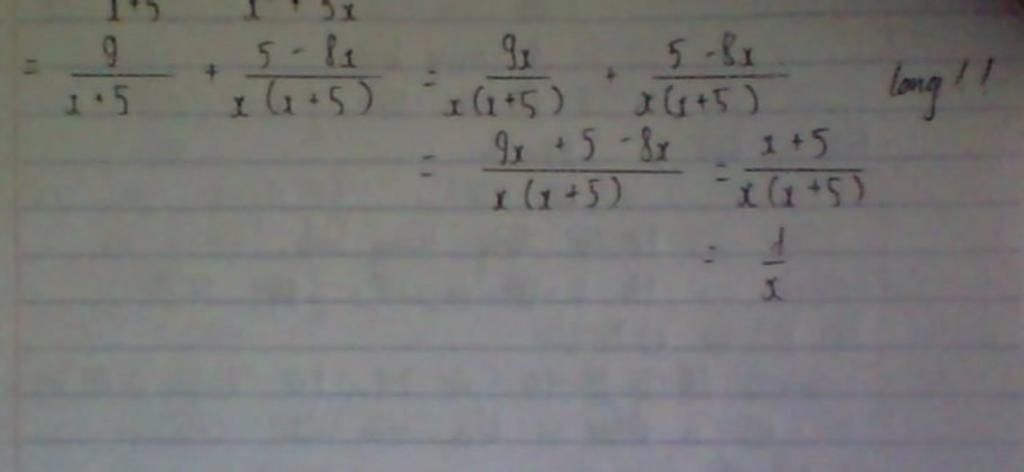 x+5 x + 5x
= 9/(x+5) + (5 - 8x)/(x(x+5)) = 9x/(x(x+5)) + (5 - 8x)/(x(x+5)) long!!
= (9x + 5 - 8x)/(x(x+5)) = (x+5)/(x(x+5))
= 1/x